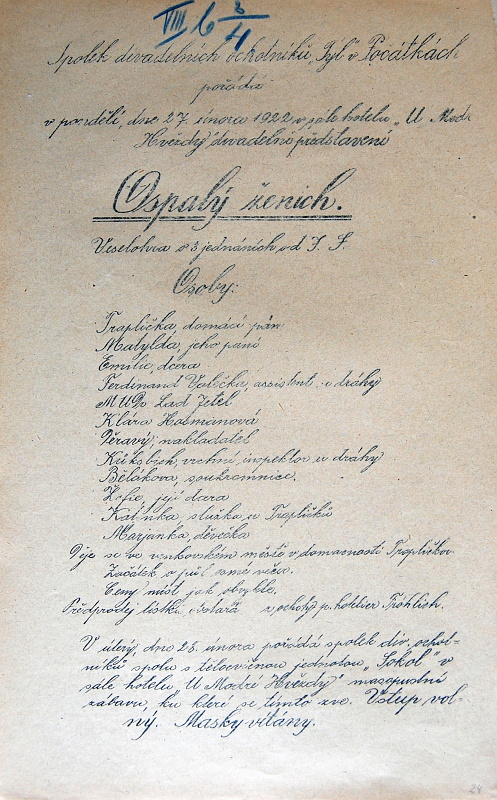 VIII 6 3/4
Spolek divadelních ochotníků „Tyl" v Počátkách
pořádá
v pondělí, dne 27. února 1922 v sále hotelu „U Modré
Hvězdy" divadelní představení
Ospalý ženich.
Veselohra o 3 jednáních, od J. S.
Osoby:
Traplička, domácí pán
Matylda, jeho paní
Emilie, dcera
Ferdinand Valečka, assistent u dráhy
MUDr Lad Jetel
Klára Hofmanová
Žeravý, nakladatel
vrchní inspektor u dráhy
Bělákova, soukromnice,
Žofie, její dcera
Katinka, služka u Trapličků
Marjanka, děvečka
Děje se ve venkovském městě v domácnosti Trapličkov
Začátek o půl osmé večer.
Ceny míst jak obvykle.
Předprodej lístků obstará z ochoty p. hotelier Fröhlich.
V úterý, dne 28. února pořádá spolek div. ochot-
níků spolu s tělocvičnou jednotou „Sokol" v
sále hotelu „U Modré Hvězdy" masopustní
zábavu, ku které se tímto zve. Vstup vol-
ný. Masky vítány.